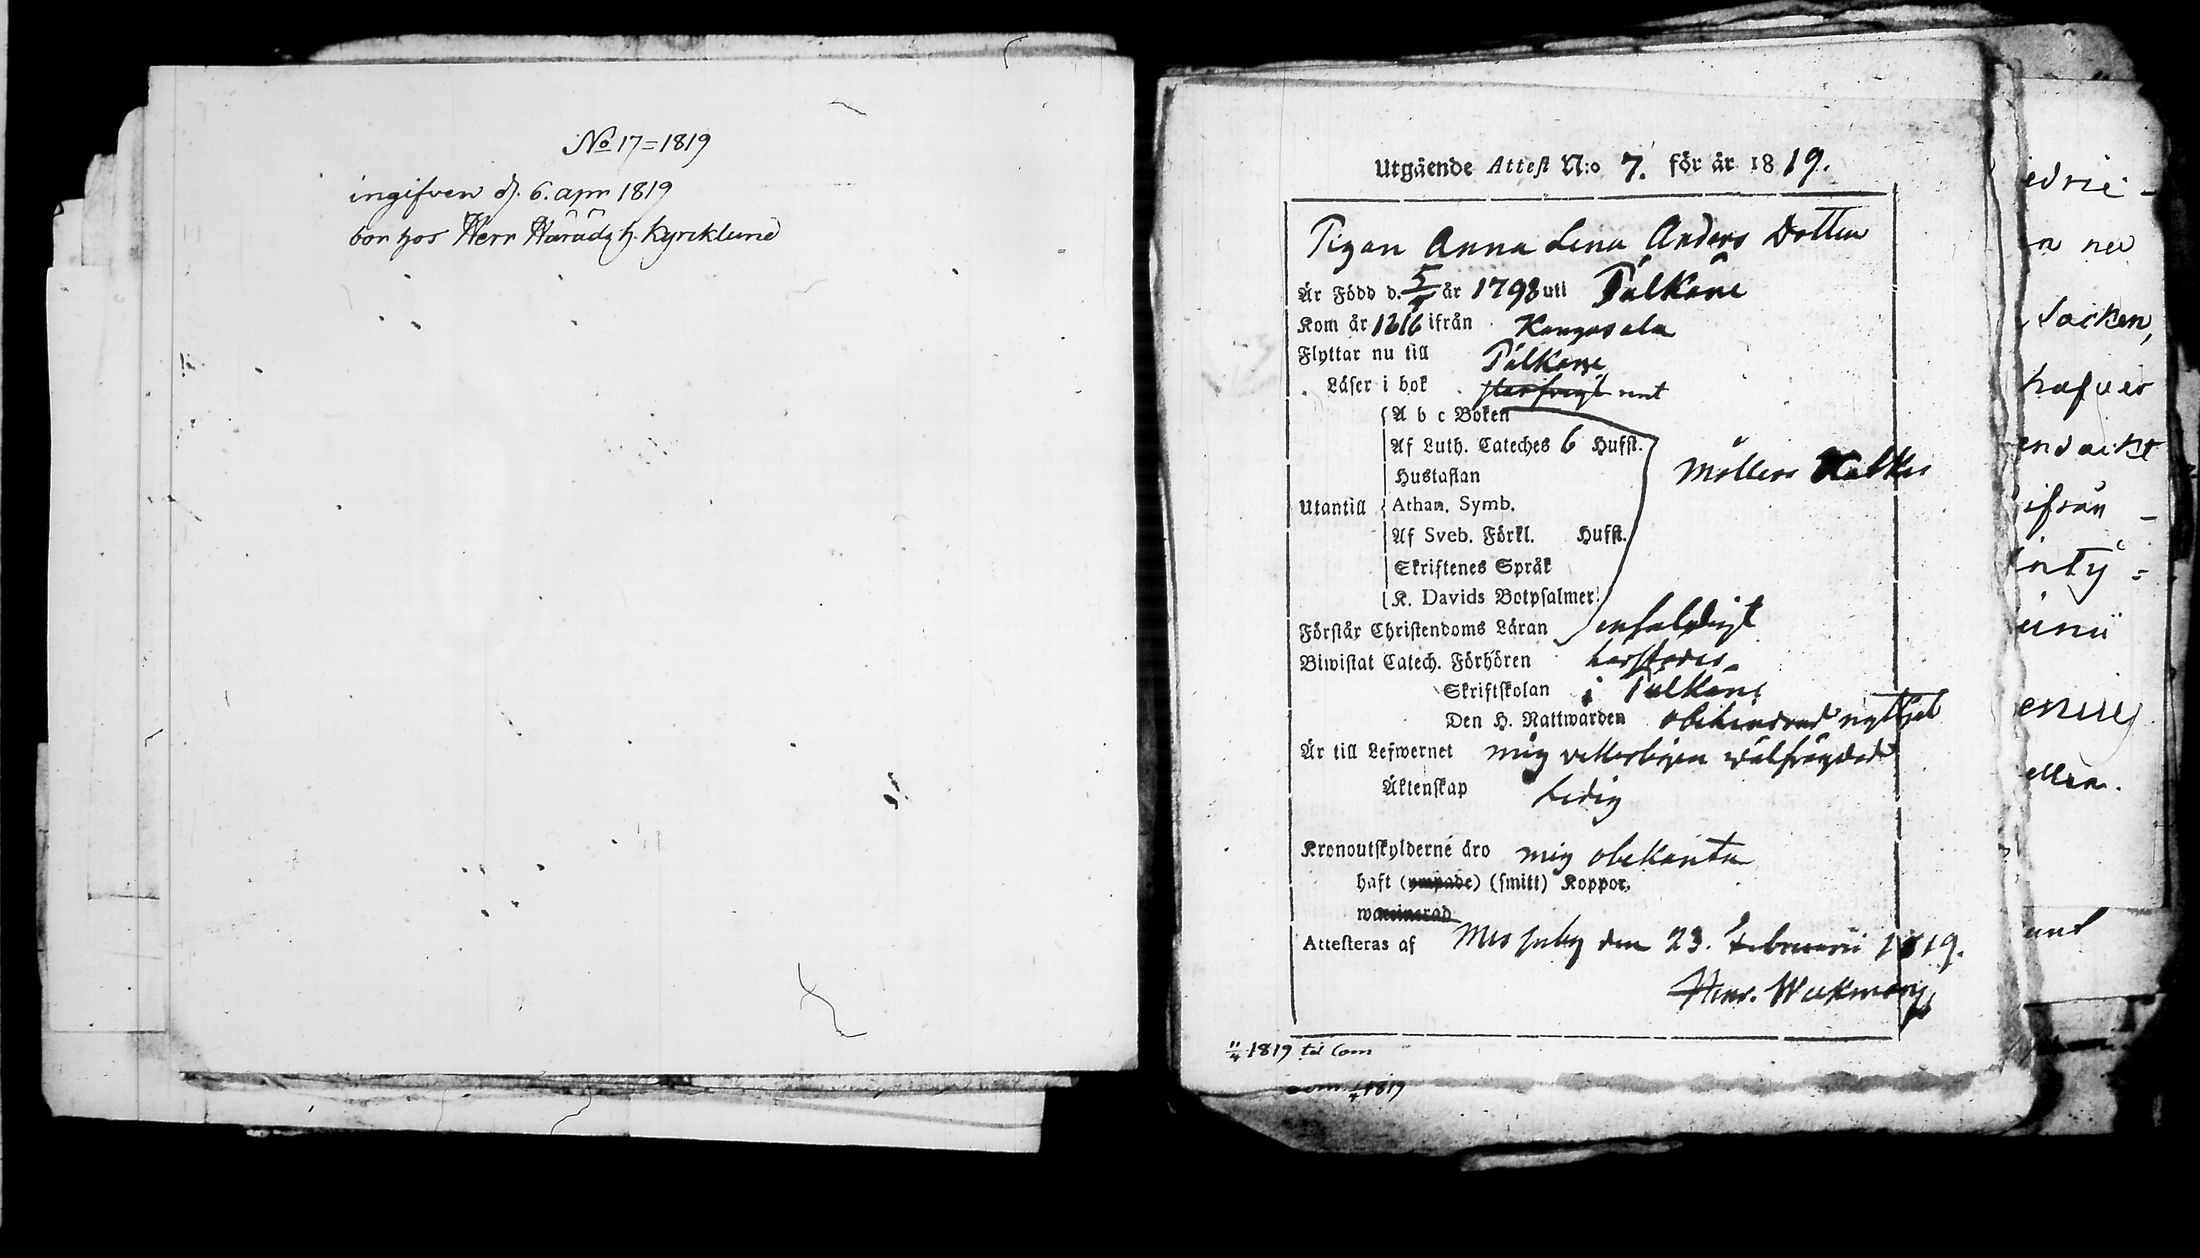 No 17=1819
ingifven d. 6. apr 1819
bor hos Herr Härädsh. Kyrcklund
Utgående Attest N:o 7. för år 1819.
Pigan Anna Lena Anders Dotter
Är Född d. 5/4 år 1798 uti Pälkäne
Kom år 1816 ifrån Kangasala
Flyttar nu till Pälkäne
Läser i bok
A b c Boken
Af Luth. Cateches 6 Hufst.
Hustaflan
Möllers
Utantill Athan. Symb.
Af Sveb. Förkl. Hufst.
Skriftenes Språk
K. Davids Botpsalmer
Förstår Christendoms Läran enfaldigt
Biwistat Catech. Förhören härstädes
Skriftskolan i Pälkäne
Den H. Nattwarden obehindrad nyttjat
Är till Lefwernet mig vetterligen välfrägdad
Äktenskap Ledig
Kronoutskylderne äro mig obekanta
haft (ympade) (smitt) Koppor.
waccinerad
Attesteras af Messuby den 23. Februarii 1819.
Henr. Wacklin
11/4 1819 til Com
1819
hafver
ifrån